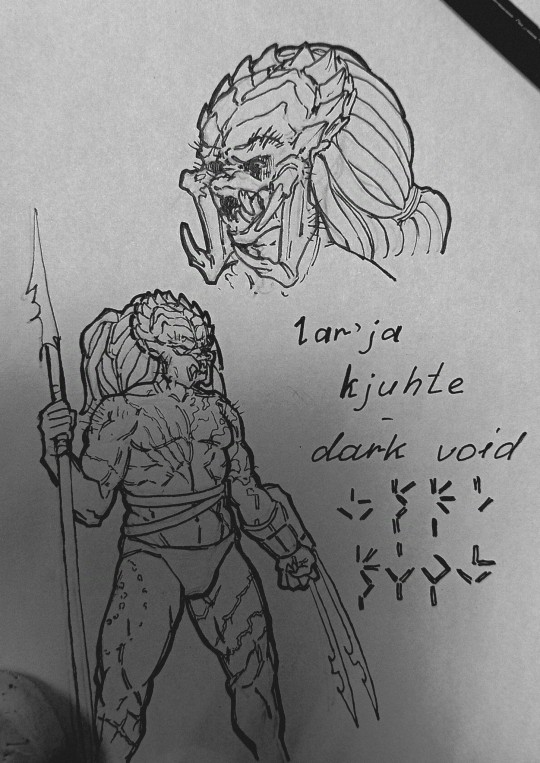 lar'ja
kjuhte
-
dark void